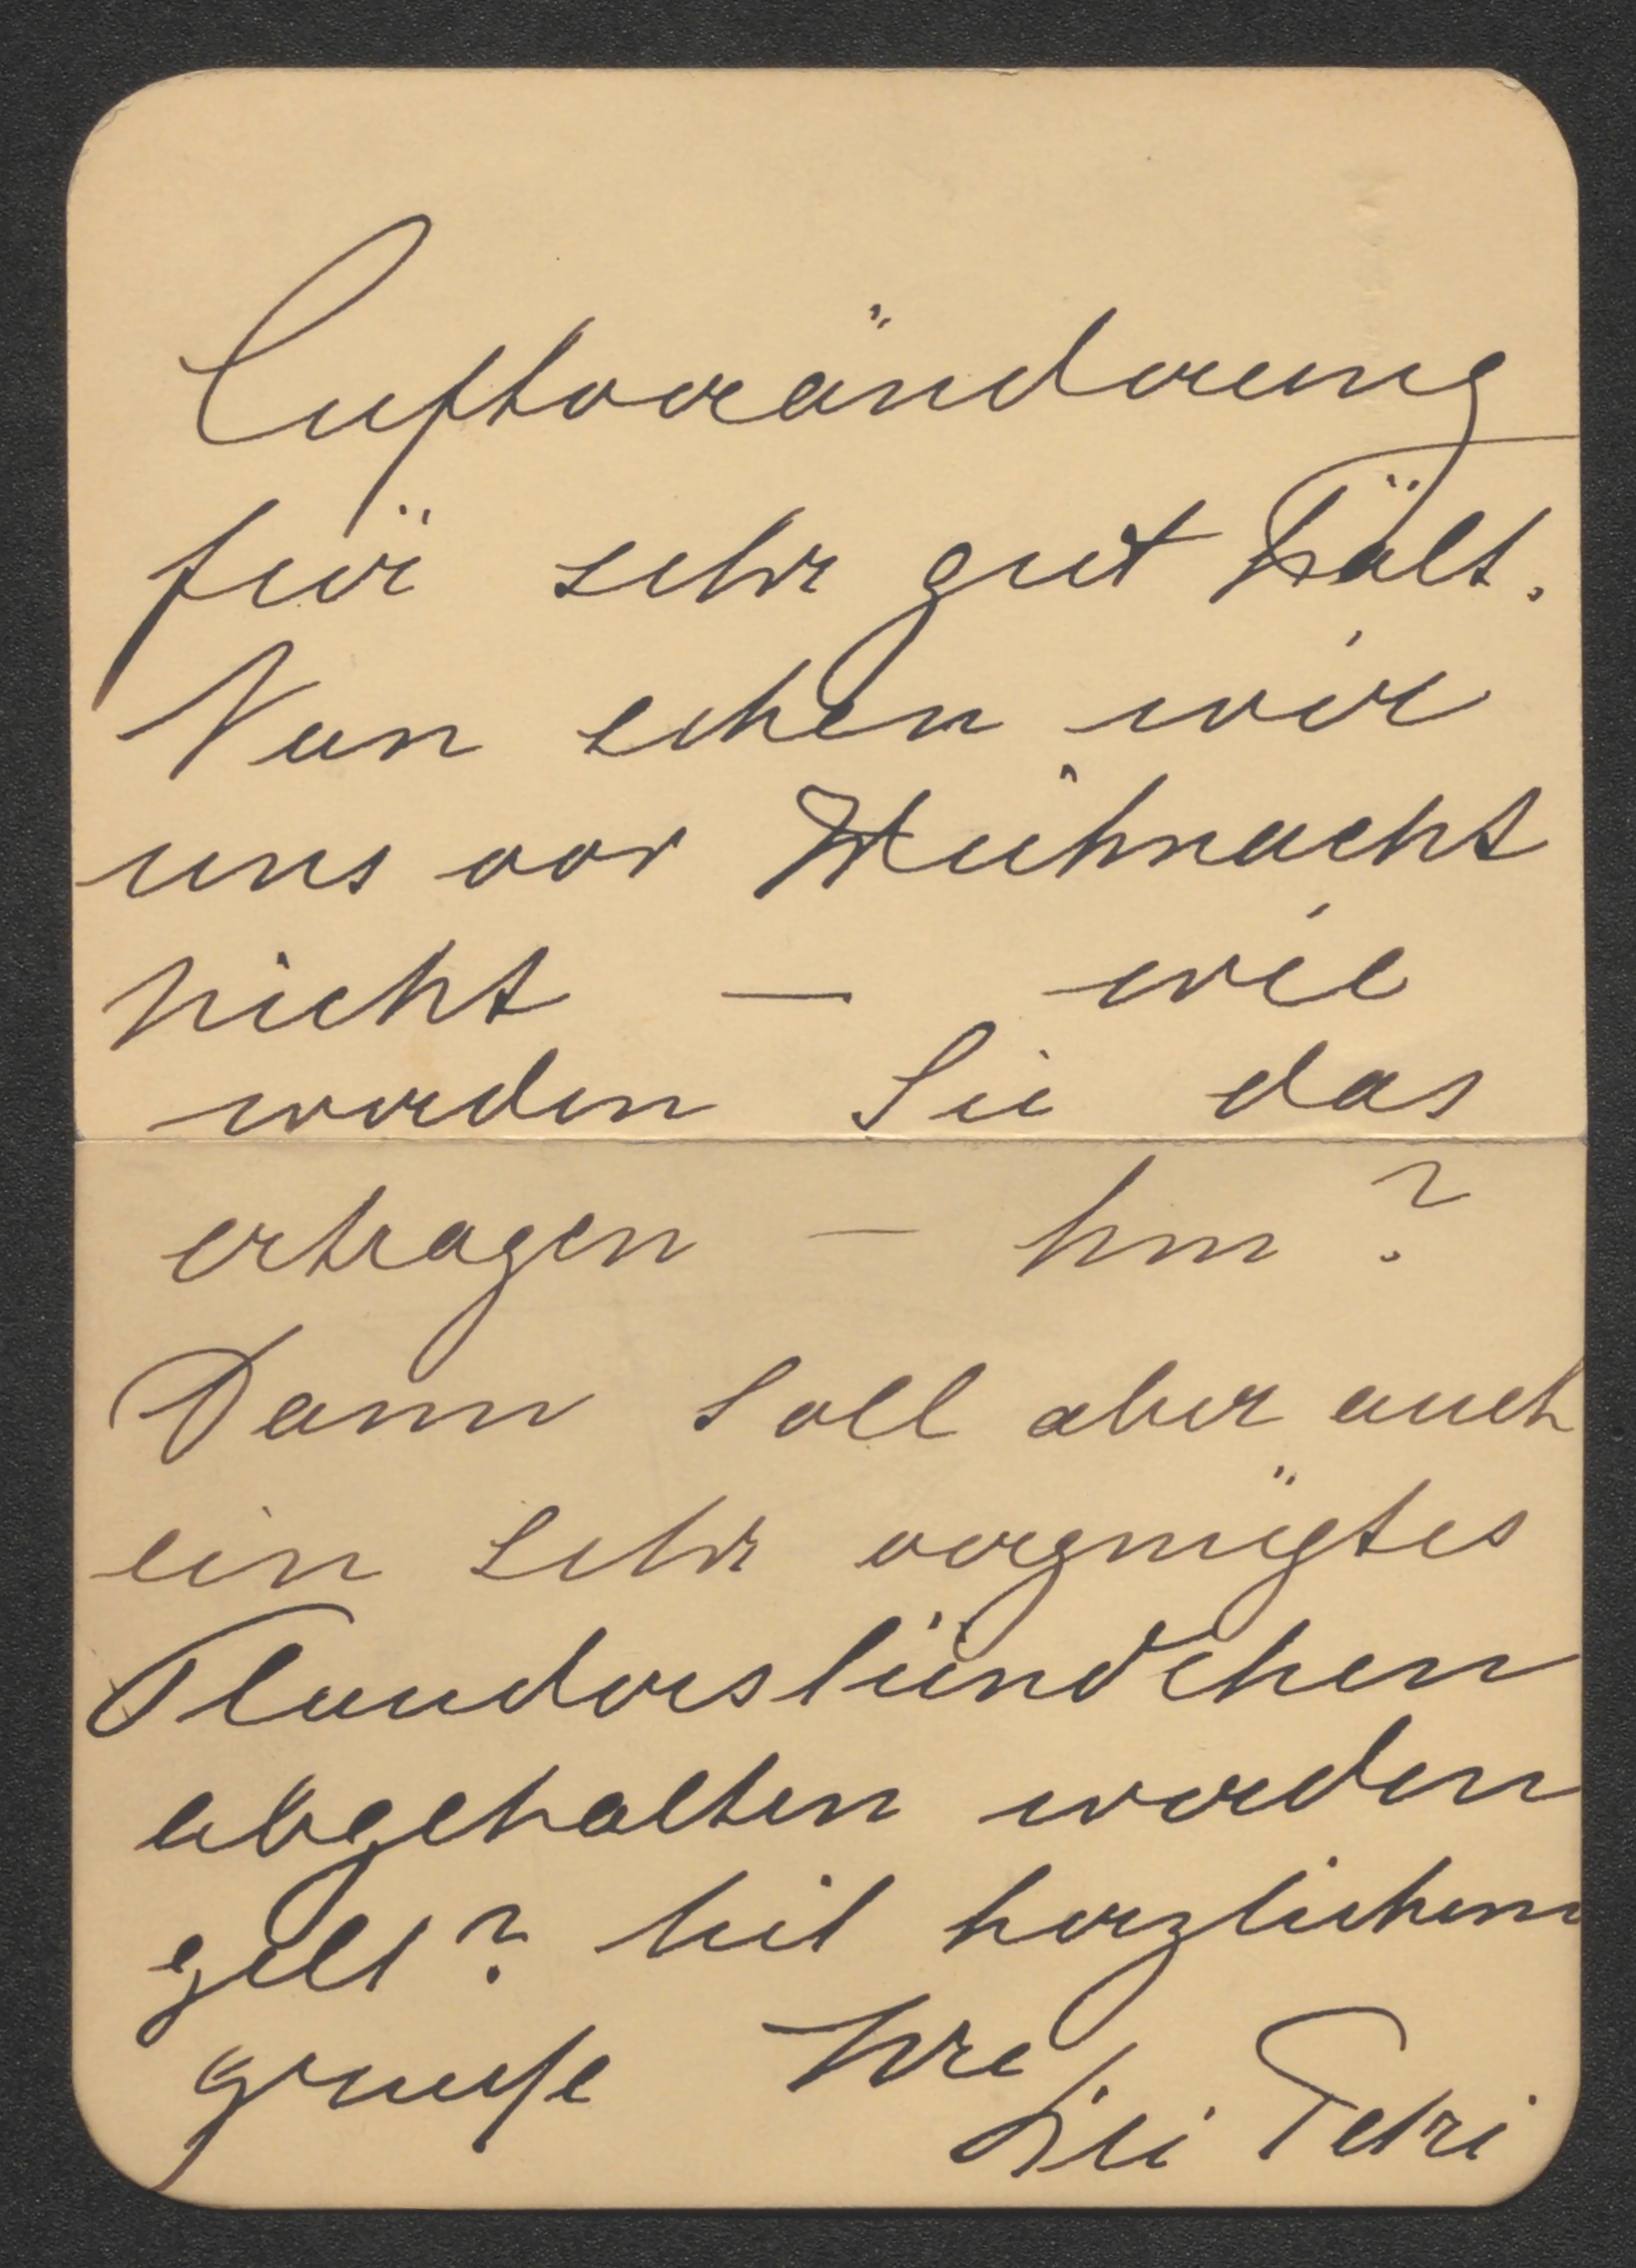 Luftveränderung
für sehr gut hält.
Nun sehen wir
uns vor Weihnacht
nicht — wie
werden Sie das
ertragen — hm?
Dann soll aber auch
ein sehr vergnügtes
Plauderstündchen
abgehalten werden
gelt? Mit herzlichem
grusse Ihre
Lili Petri